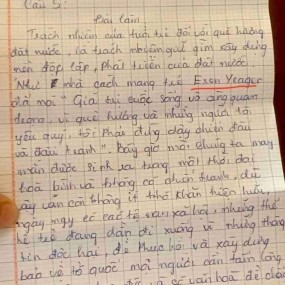 Câu 5:
Bài làm
Trách nhiệm của tuổi trẻ đối với quê hương
đất nước, là trách nhiệm giữ gìn xây dựng
nền độc lập, phát triển của đất nước
Như nhà cách mạng trẻ Eren Yeager
đã nói " Giá trị cuộc sống vô cùng quan
trọng, vì quê hương và những người tôi
yêu quý, tôi phải đứng dậy chiến đấu
và đấu tranh". Bây giờ mỗi chúng ta may
mắn được sinh ra trong một thời đại
hoà bình và không có chiến tranh, dù
vậy vẫn còn không ít thế khăn hiện hữu,
ngày nay có các tệ nạn xã hội, những thế
hệ trẻ đang dần đi xuống vì những thông
tin độc hại, để thực hiện và xây dựng
bảo vệ tổ quốc mỗi người cần tấm lòng
và có văn hoá để